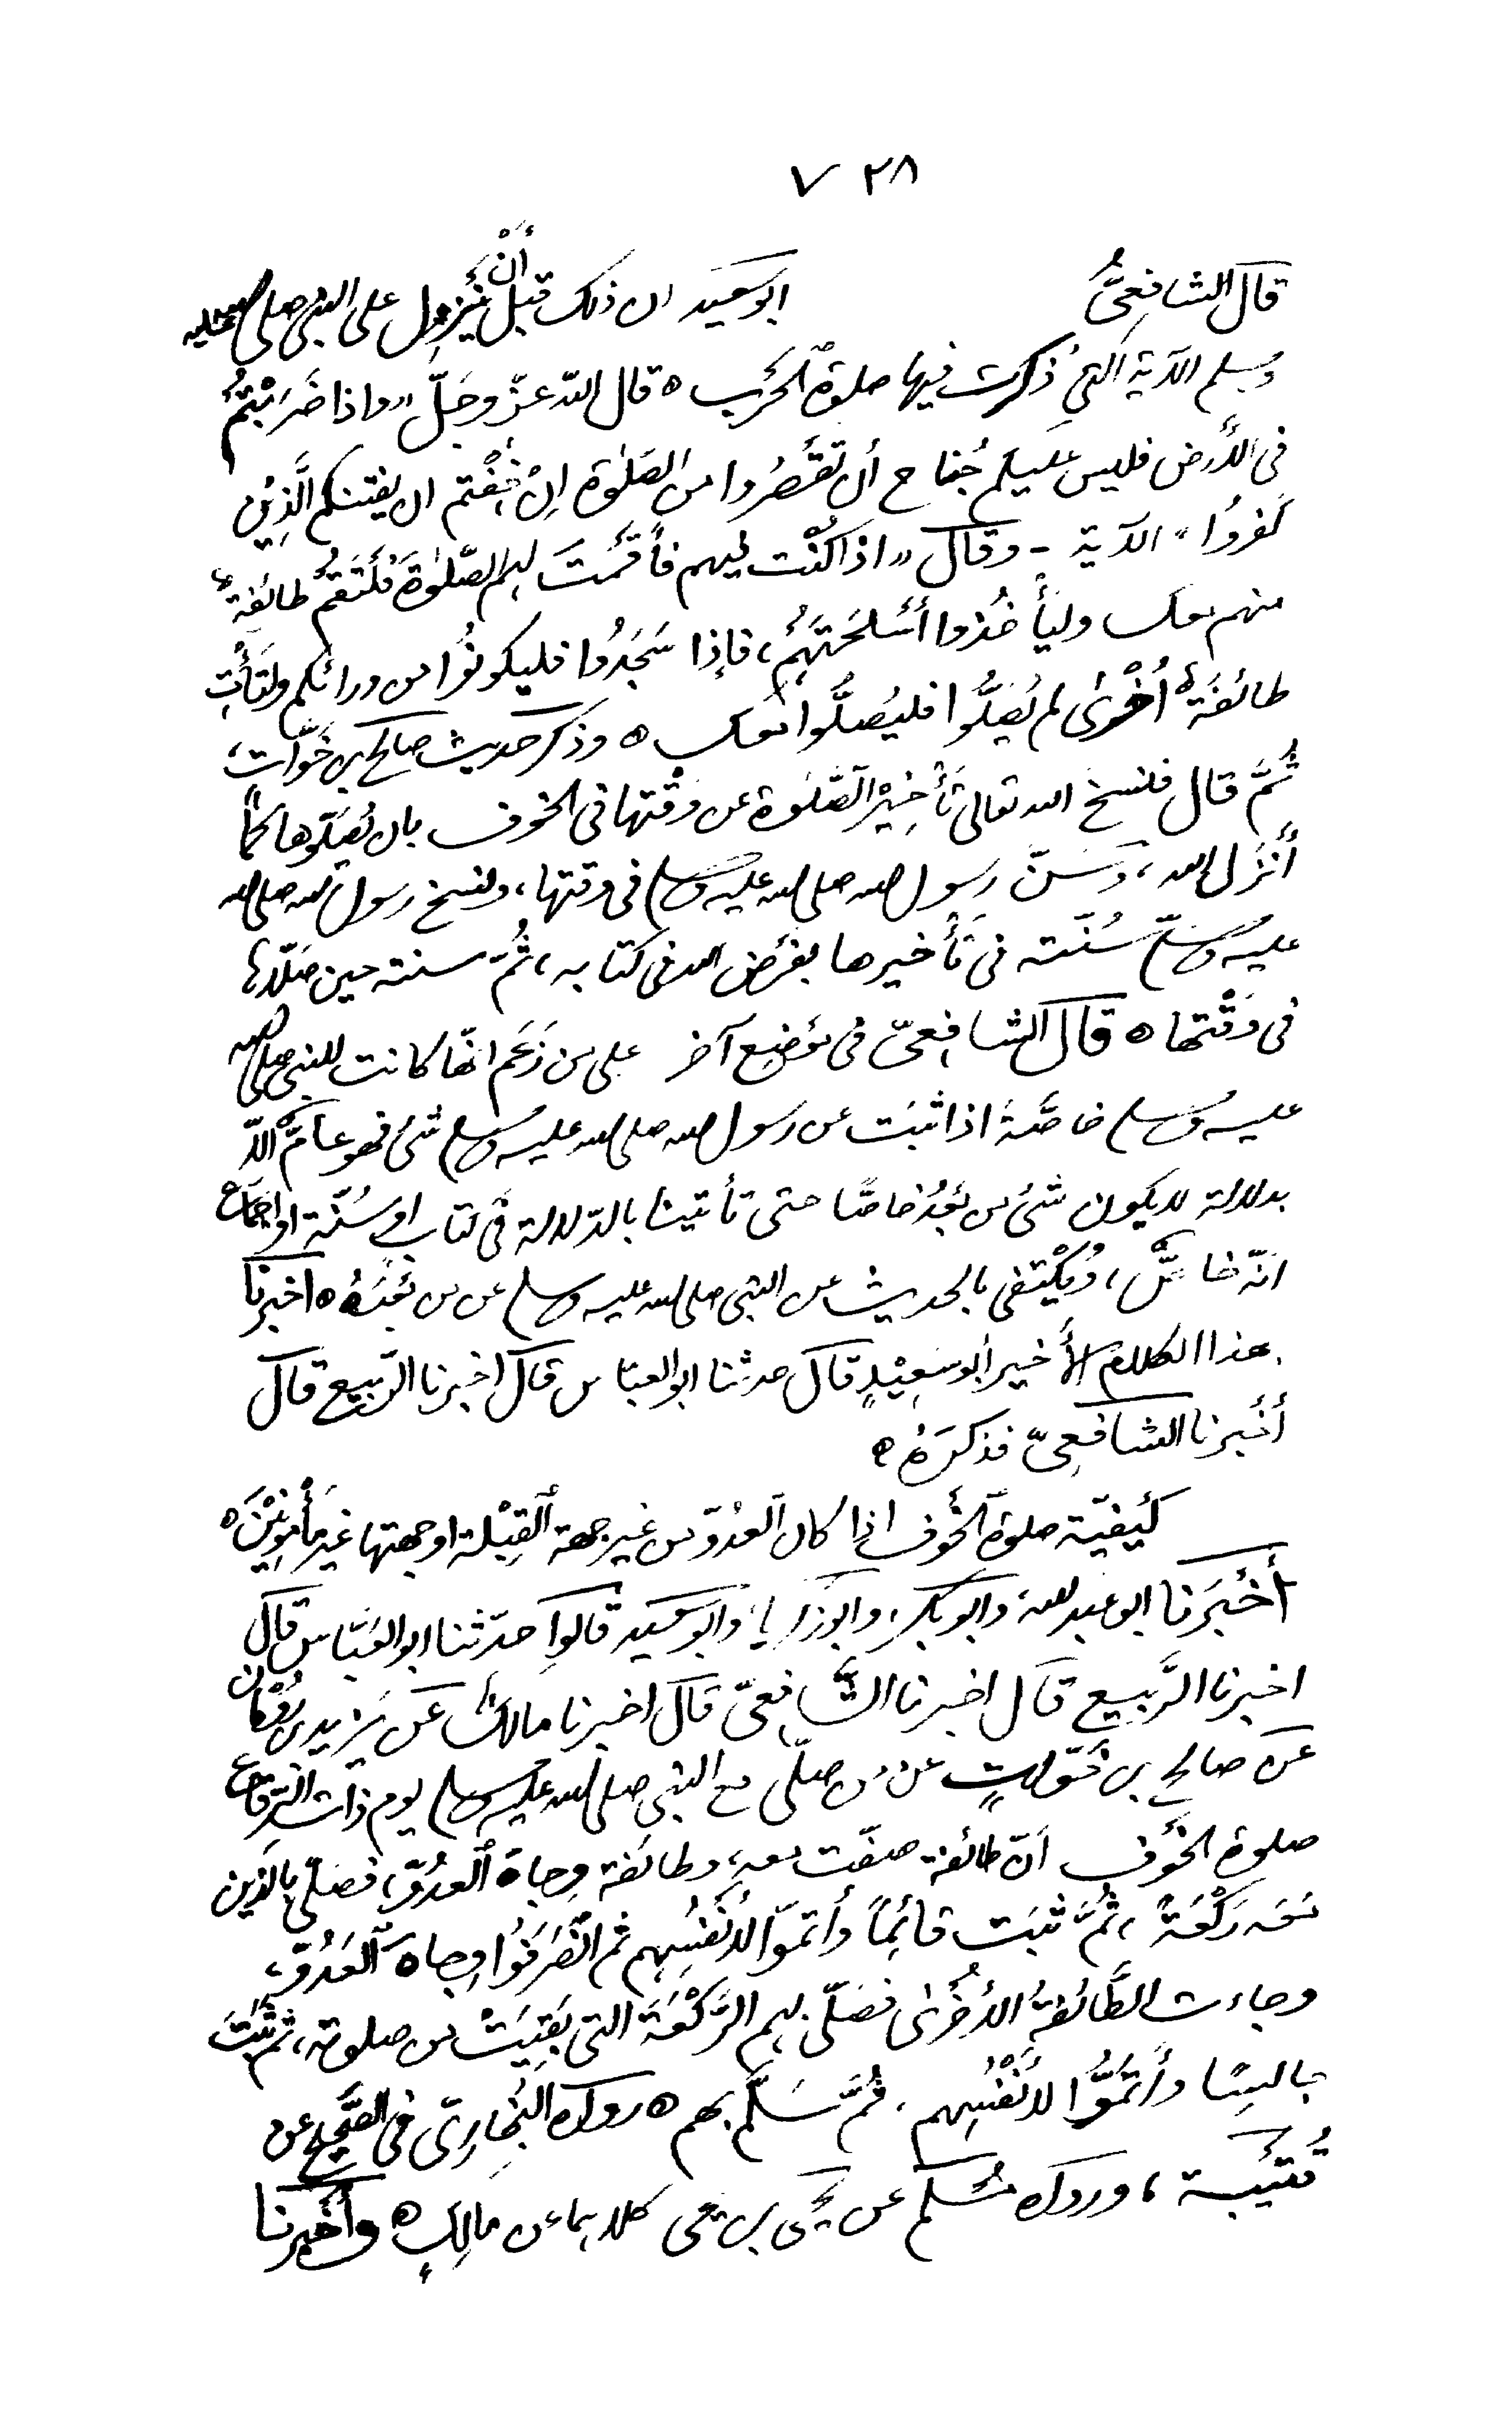 ٧٢٨
قال الشافعيُّ ابو سعيد ان ذلك قبل أنْ يُنزِل على النبي صلى الله عليه
وسلم الآية التي ذُكرت فيها صلوة الخَوف ٥ قال الله عزّ وجَلّ "واذا ضَرَبْتُمْ
في الأرض فليس عليكم جُناح أن تَقْصُروا من الصَلوٰة اِنْ خِفْتم ان يفتنكم الَّذِين
كفروُا" الآية - وقال "اذا كُنْت فيهم فأقَمْتَ لهم الصّلوٰةَ فَلْتَقُمْ طائفةٌ
منهم معك وليَأْخُذوا أَسْلِحَتَهُم، فإذا سَجَدُوا فليكونُوْا من ورائكم ولْتَأْتِ
طائفةٌ اُخْرىٰ لم يُصَلُّوا فليُصلُّوا معك ٥ وذكر حديث صالح بن خَوّات،
ثُمَّ قال فنسخ الله تعالى تَأْخِيْر الصَّلوة عن وَقْتها في الخوف بان يُصَلّوها كما
أَنْزَل الله، وسَنّ رسول الله صلى الله عليه وسلم في وقتها، ونسخ رسول الله صلى الله
عليه وسلّم سُنّته في تَأْخيرها بفَرْض الله في كتابه، ثُمّ سنته حين صَلّاها
في وَقْتها ٥ قال الشافِعيّ في مَوْضِع آخر على من زَعَم انّها كانت للنبي صلى الله
عليه وسلم خاصَّةً اذا ثبَت عن رسول الله صلى الله عليه وسلم شئ فهو عامٌّ الّا
بدلالة لا يكون شئ من بَعْدُ خاصًّا حتى تأتينا بالدّلالة في كتاب او سُنّة او اجماع
انّه خاصٌّ، ويُكْتفى بالحديث عن النبي صلى الله عليه وسلم عن من بَعْدَهُ ٥ اخبرنا
هذا الكلام الأخير أبو سَعِيْدٍ قال حدثنا ابو العبّاس قال اخبرنا الرّبيع قال
أخْبرنا الشافعِيّ فذكرَهُ ٥
كَيْفيّة صلوة الخَوف اذا كان العدُوّ من غير جهة القِبْلة او جهتها غير مَأْمونِيْنَ ٥
أخْبَرنا ابو عَبد الله وابو بكر وابو زكريا وابو سعيد قالوا حدّثنا ابو العَبّاس قال
اخبرنا الرَّبيع قال اخبرنا الشَّافعيّ قال اخبرنا مالكٌ عن يَزيد بن رُوْمان
عن صالح بن خَوّاتٍ عن من صلّى مع النبي صلى الله عليه وسلم يوم ذات الرِّقاع
صلوة الخَوف أنّ طائفة صفّت معه، وطائفة وِجاه العدُوّ، فصَلّى بالذين
مَعه رَكْعَةً، ثُمَّ ثبَت قائِماً وأتمّوا لأنفُسِهم ثم انْصَرَفُوْا وِجاه العَدُوّ،
وجاءت الطَّائفةُ الأُخْرىٰ فصَلّى بِهم الرَّكْعَةَ التي بَقِيَتْ من صلوته، ثم ثَبَتَ
جالسًا وأتمُّوا لأنْفُسِهم. ثُمَّ سَلَّم بهم ٥ رواه البُخارِيّ في الصَّحيح عن
قُتَيْبة، ورواه مُسْلم عن يَحْيَى بن يحيى كلاهما عن مالكٍ ٥ وأخْبرنا